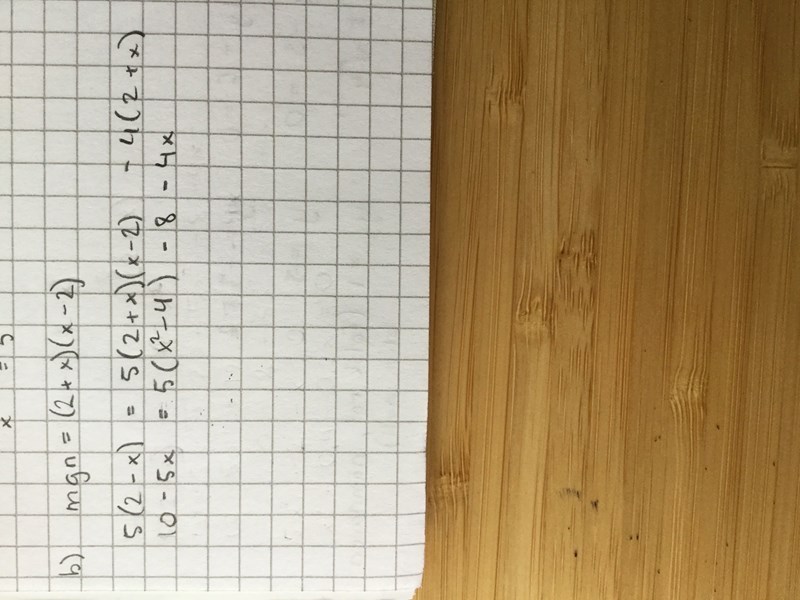 x = 5
b) mgn = (2+x)(x-2)
5(2-x) = 5(2+x)(x-2) - 4(2+x)
10-5x = 5(x²-4) - 8 - 4x